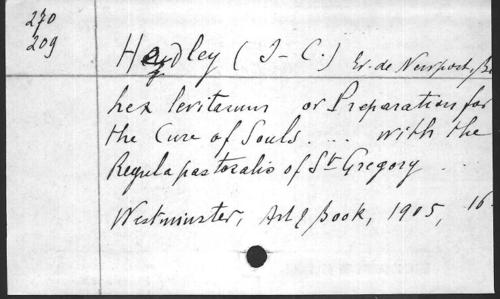 270
209
Hedley (J-C.) Ev. de Newport, Be
hex levitarum or Preparation for
the Cure of Souls.... with the
Regula pastoralis of St Gregory ...
Westminster, Art & Book, 1905, 16